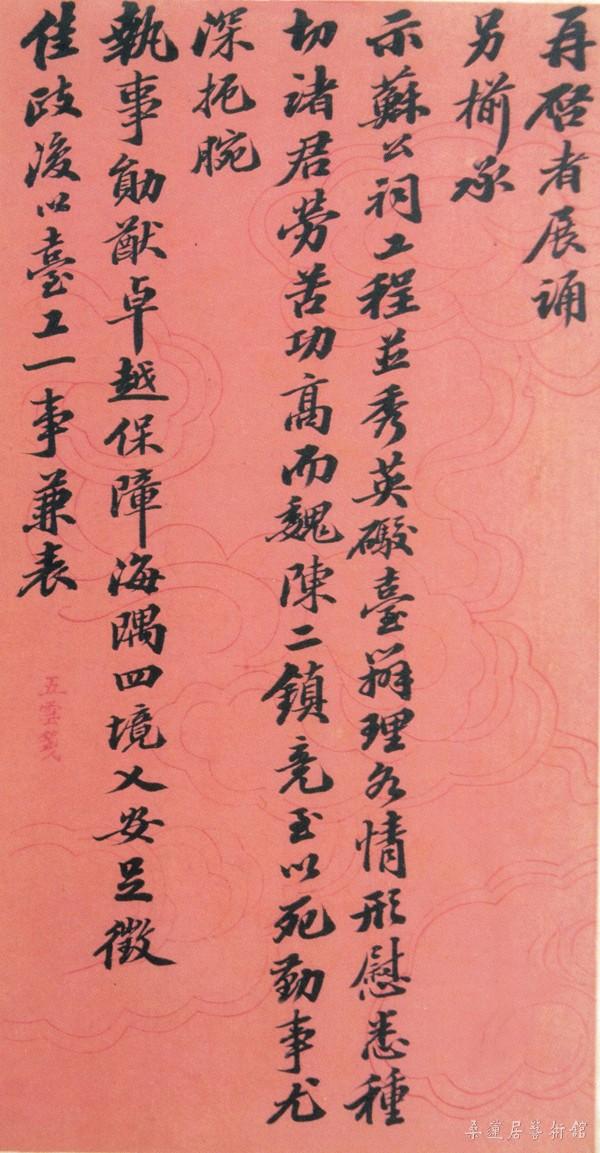 再啓者展誦
另櫥承
示蘇公祠工程並秀英礮臺辦理各情形慰悉種
切諸君勞苦功高而魏陳二鎮竟至以死勤事尤
深扼腕
執事勛猷卓越保障海隅四境乂安足徵
佳政後以臺工一事兼表
五雲箋
桑蓮居藝術館